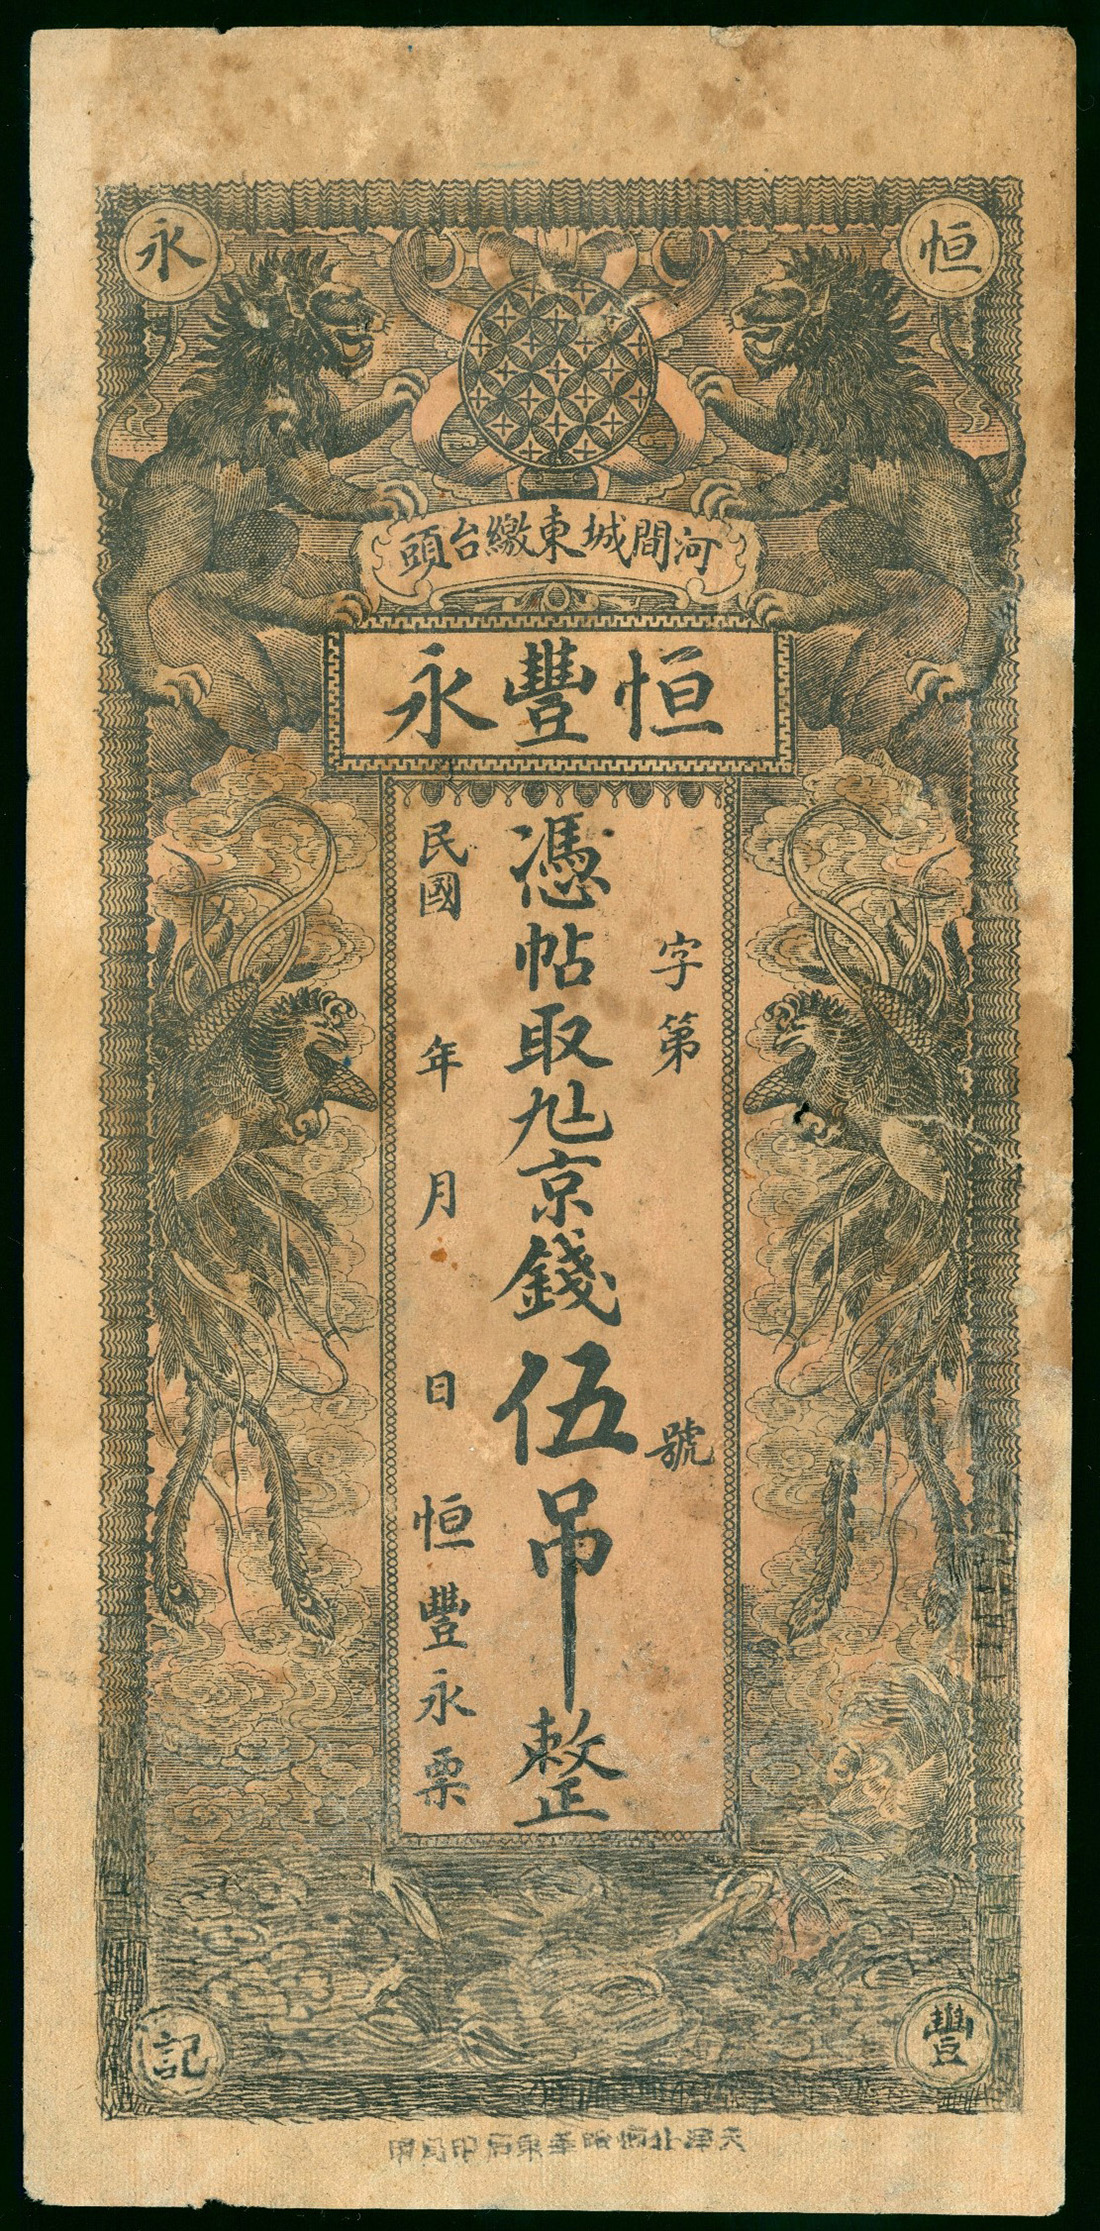 恒
永
河間城東繳台頭
恒豐永
字第 號
憑帖取 京錢伍吊整
民國 年 月 日 恒豐永票
豐
記
天津北馬路華東石印局印